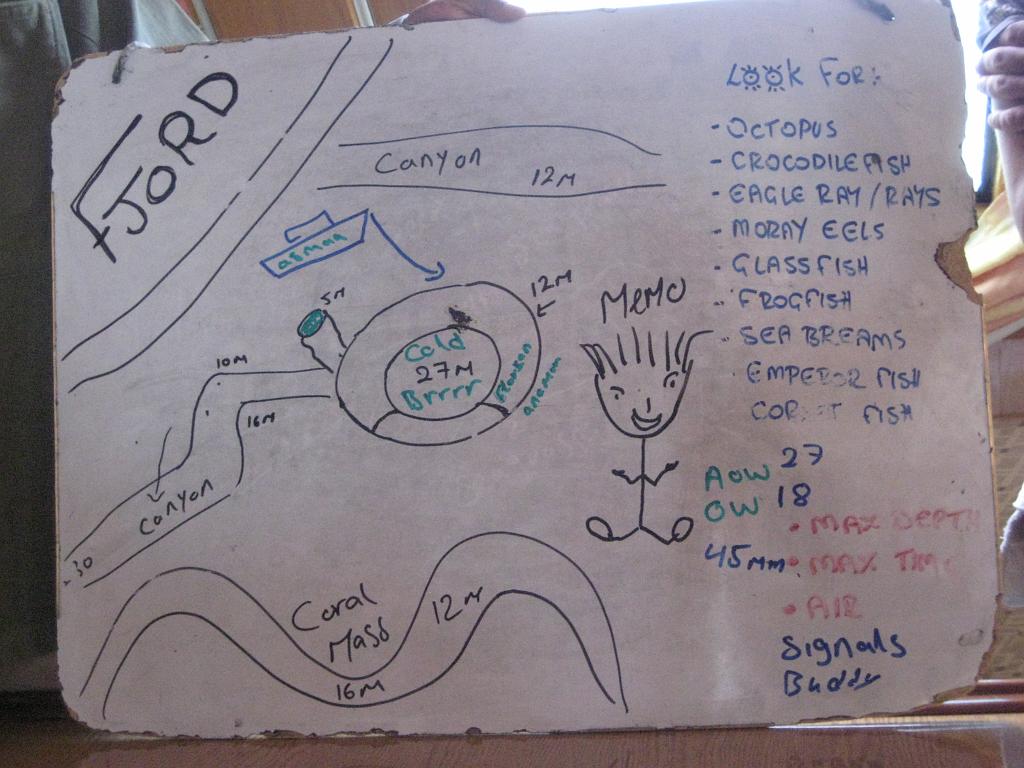 FJORD
Canyon
12M
5M
12M
Cold
27M
Brrrr
10M
16M
Canyon
30
Coral
Mass
12M
16M
MEMO
LOOK FOR:
- OCTOPUS
- CROCODILEFISH
- EAGLE RAY / RAYS
- MORAY EELS
- GLASSFISH
- FROGFISH
- SEA BREAMS
EMPEROR FISH
FISH
AOW 27
OW 18
• MAX DEPTH
45 • MAX TIM
• AIR
Signals
Buddy